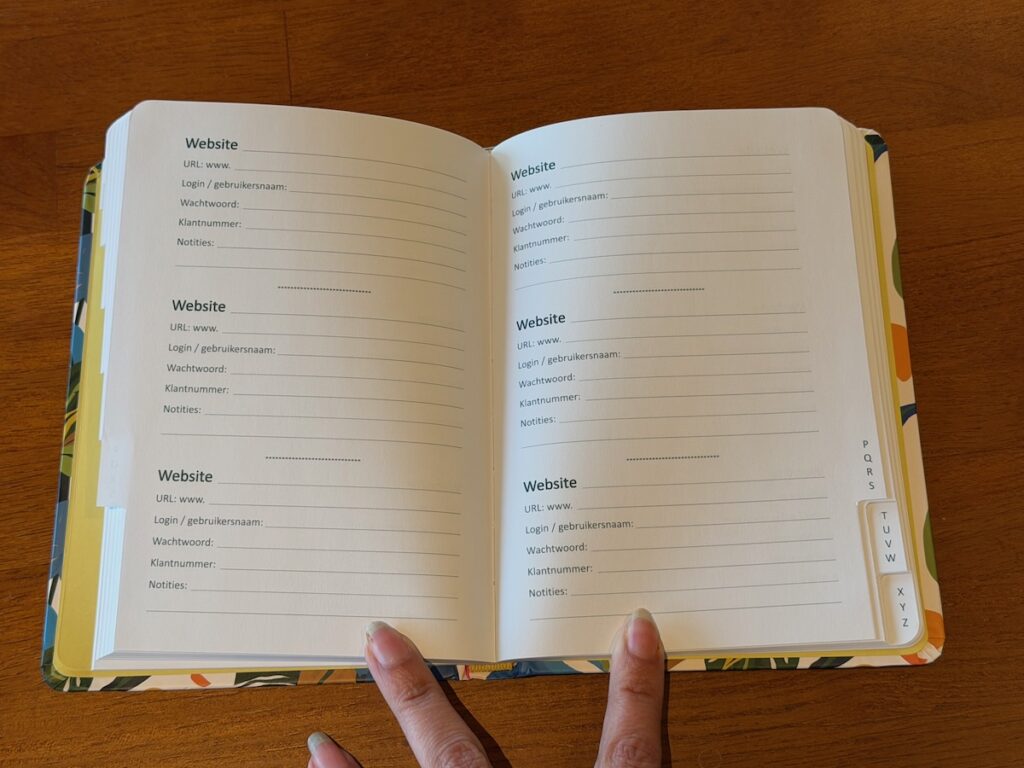 Website
URL: www.
Login / gebruikersnaam:
Wachtwoord:
Klantnummer:
Notities:
Website
URL: www.
Login / gebruikersnaam:
Wachtwoord:
Klantnummer:
Notities:
Website
URL: www.
Login / gebruikersnaam:
Wachtwoord:
Klantnummer:
Notities:
Website
URL: www.
Login / gebruikersnaam:
Wachtwoord:
Klantnummer:
Notities:
Website
URL: www.
Login / gebruikersnaam:
Wachtwoord:
Klantnummer:
Notities:
Website
URL: www.
Login / gebruikersnaam:
Wachtwoord:
Klantnummer:
Notities:
P
Q
R
S
T
U
V
W
X
Y
Z